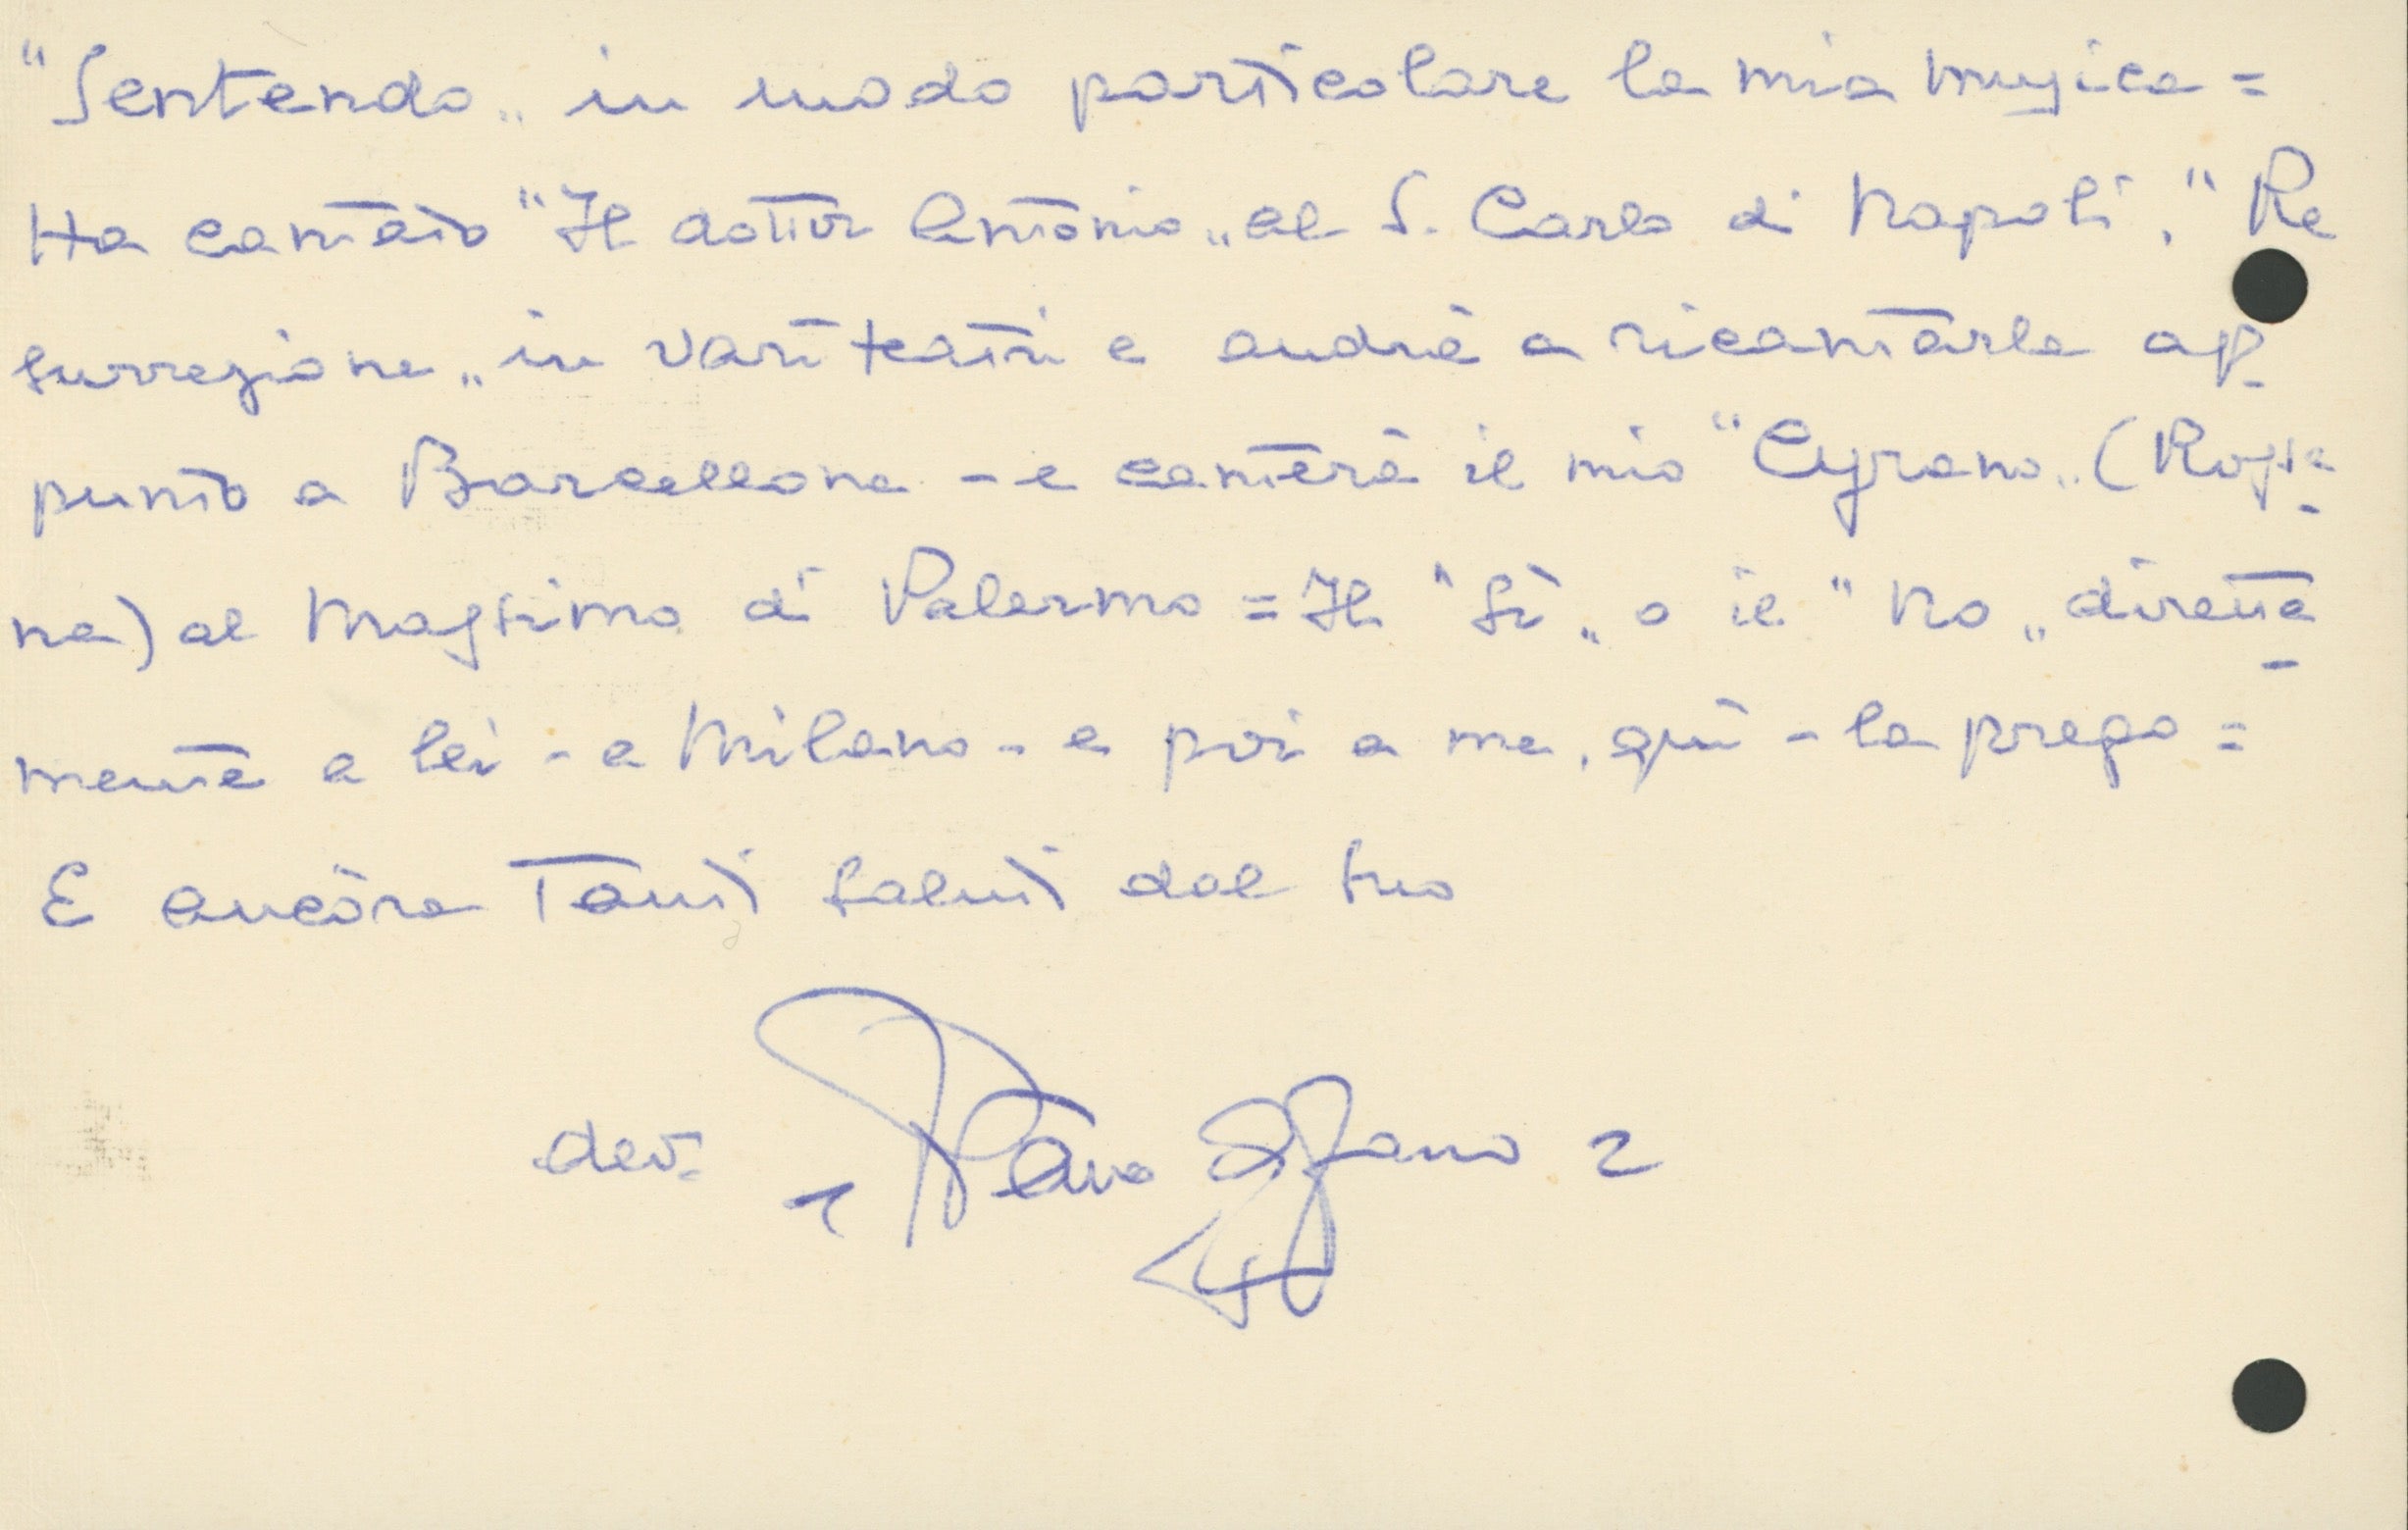 "Sentendo„ in modo particolare la mia musica =
Ha cantato "Il dottor Antonio„ al S. Carlo di Napoli, "Re
surrezione„ in varî teatri e andrà a ricantarla ap
punto a Barcellona - e canterà il mio "Cyrano„ (Rossa
na) al Massimo di Palermo = Il "Sì„ o il "No„ diretta
mente a lei - a Milano - e poi a me, quì - la prego =
E ancòra Tanti saluti dal suo
dev. Franco Alfano